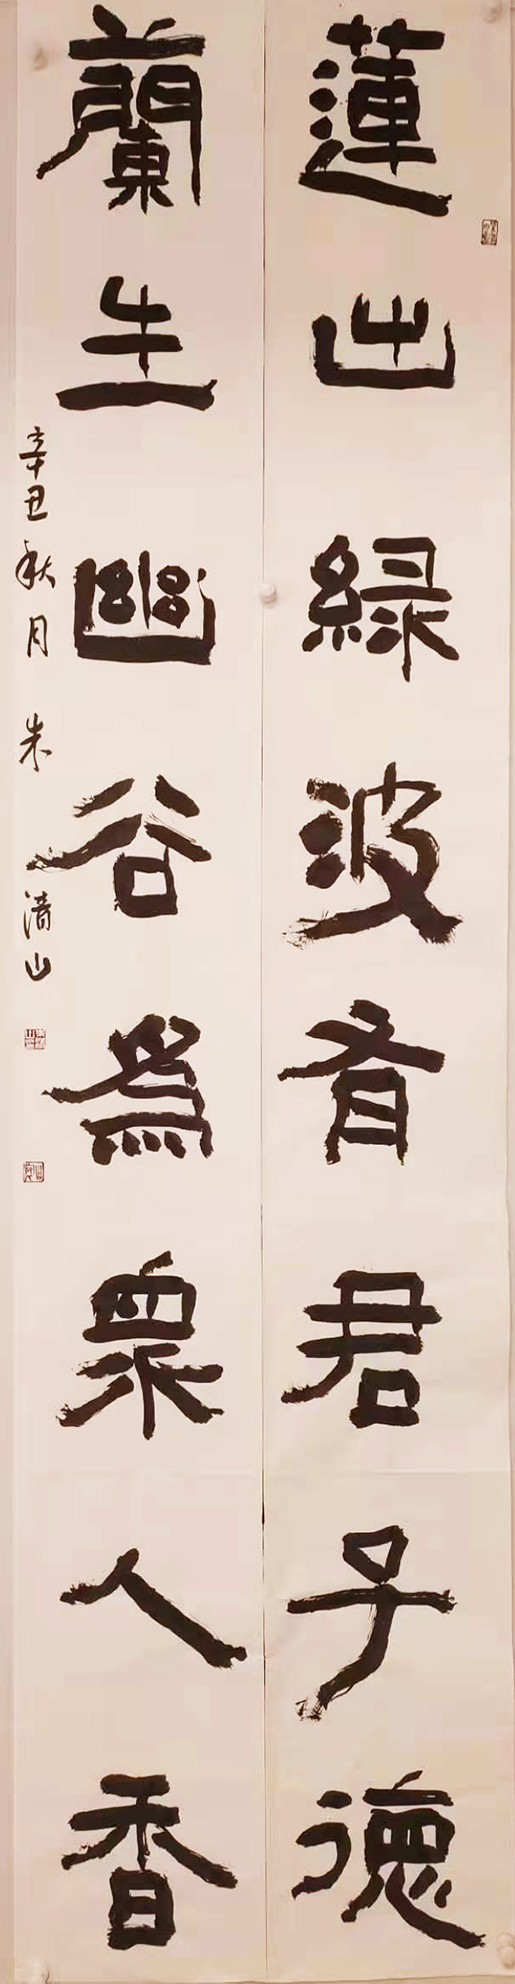 蓮出緑波有君子德
蘭生幽谷為衆人香
辛丑秋月 朱清山